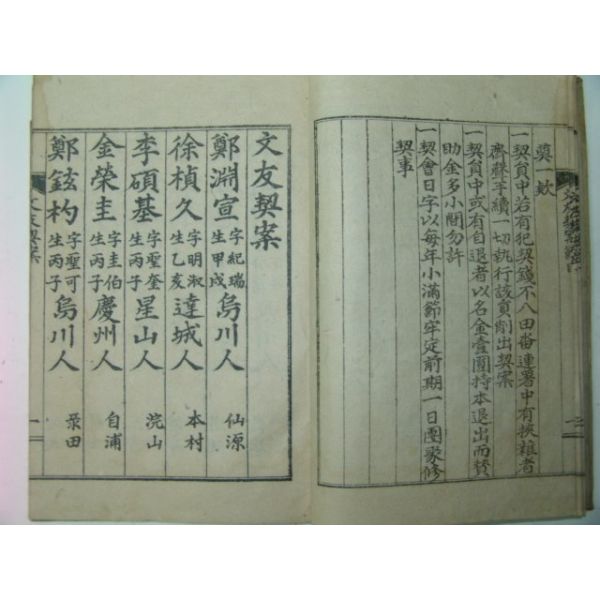 奠一欸
一契員中若有犯契錢不入田畓連署中有挾雜者
齊蘇手續一切執行該員削出契案
一契員中或有自退者以名金壹圜持本退出而贊
助金多小間勿許
一契會日字以每年小滿節牢定前期一日團聚修
契事
文友契案
鄭淵宣 字紀瑞 生甲戌 烏川人 仙源
徐楨久 字明淑 生乙亥 達城人 本村
李碩基 字聖奎 生丙子 星山人 浣山
金榮圭 字圭伯 生丙子 慶州人 自浦
鄭鉉杓 字聖可 生丙子 烏川人 彔田
文友契案
一